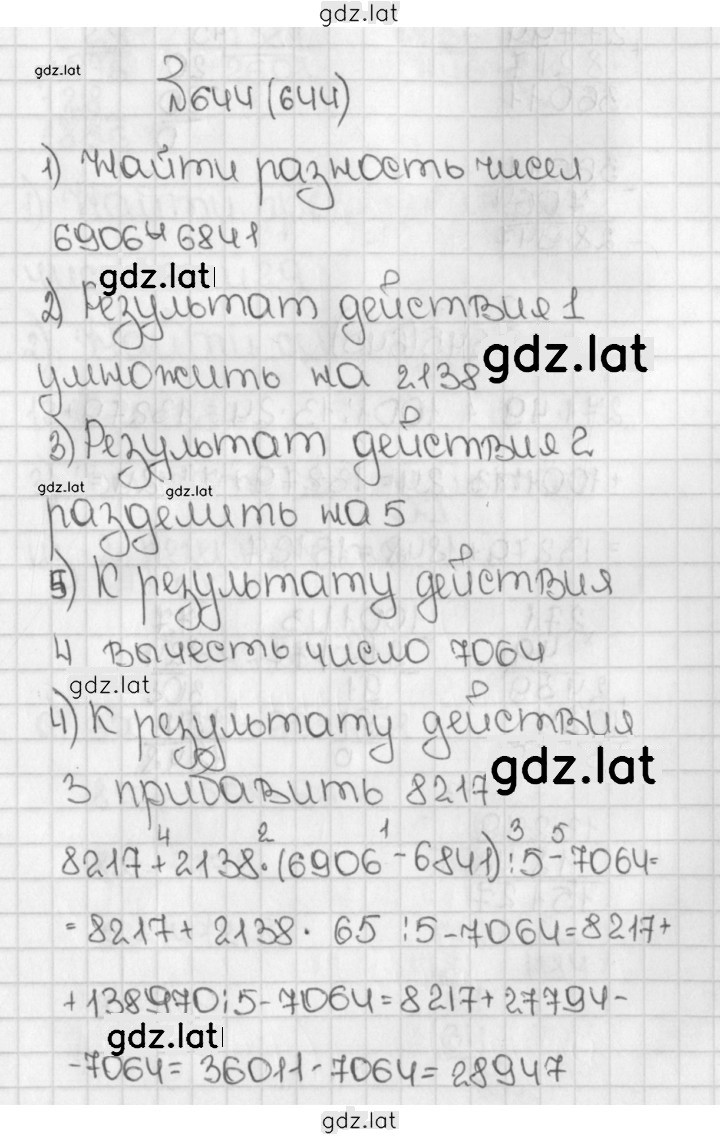 gdz.lat
gdz.lat
№644 (644)
1) Найти разность чисел
6906 и 6841
gdz.lat
2) Результат действия 1
gdz.lat
умножить на 2138
3) Результат действия 2
gdz.lat gdz.lat
разделить на 5
5) К результату действия
4 вычесть число 7064
gdz.lat
4) К результату действия
gdz.lat
3 прибавить 8217
4 2 1 3 5
8217+2138·(6906-6841):5-7064=
=8217+ 2138· 65 :5-7064=8217+
+138970:5-7064=8217+27794-
gdz.lat
-7064= 36011-7064=28947
gdz.lat